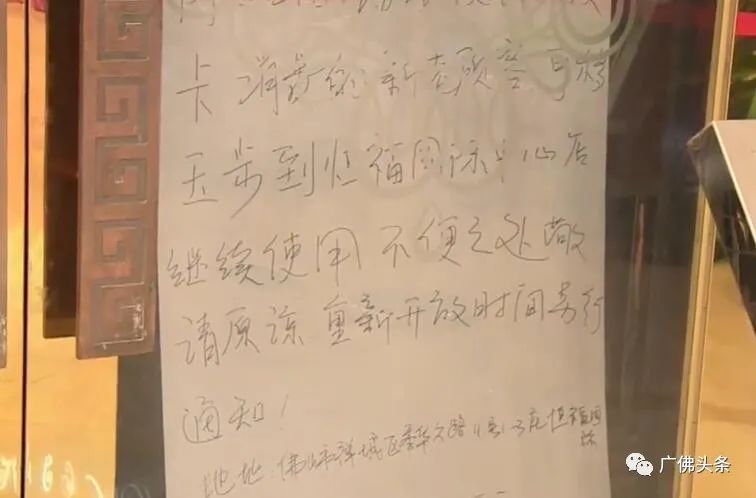 卡消费的新老顾客可移
玉步到恒福国际中心店
继续使用不便之处敬
请原谅重新开放时间另行
通知！
地址:佛山市禅城区季华六路
恒福国际
广佛头条